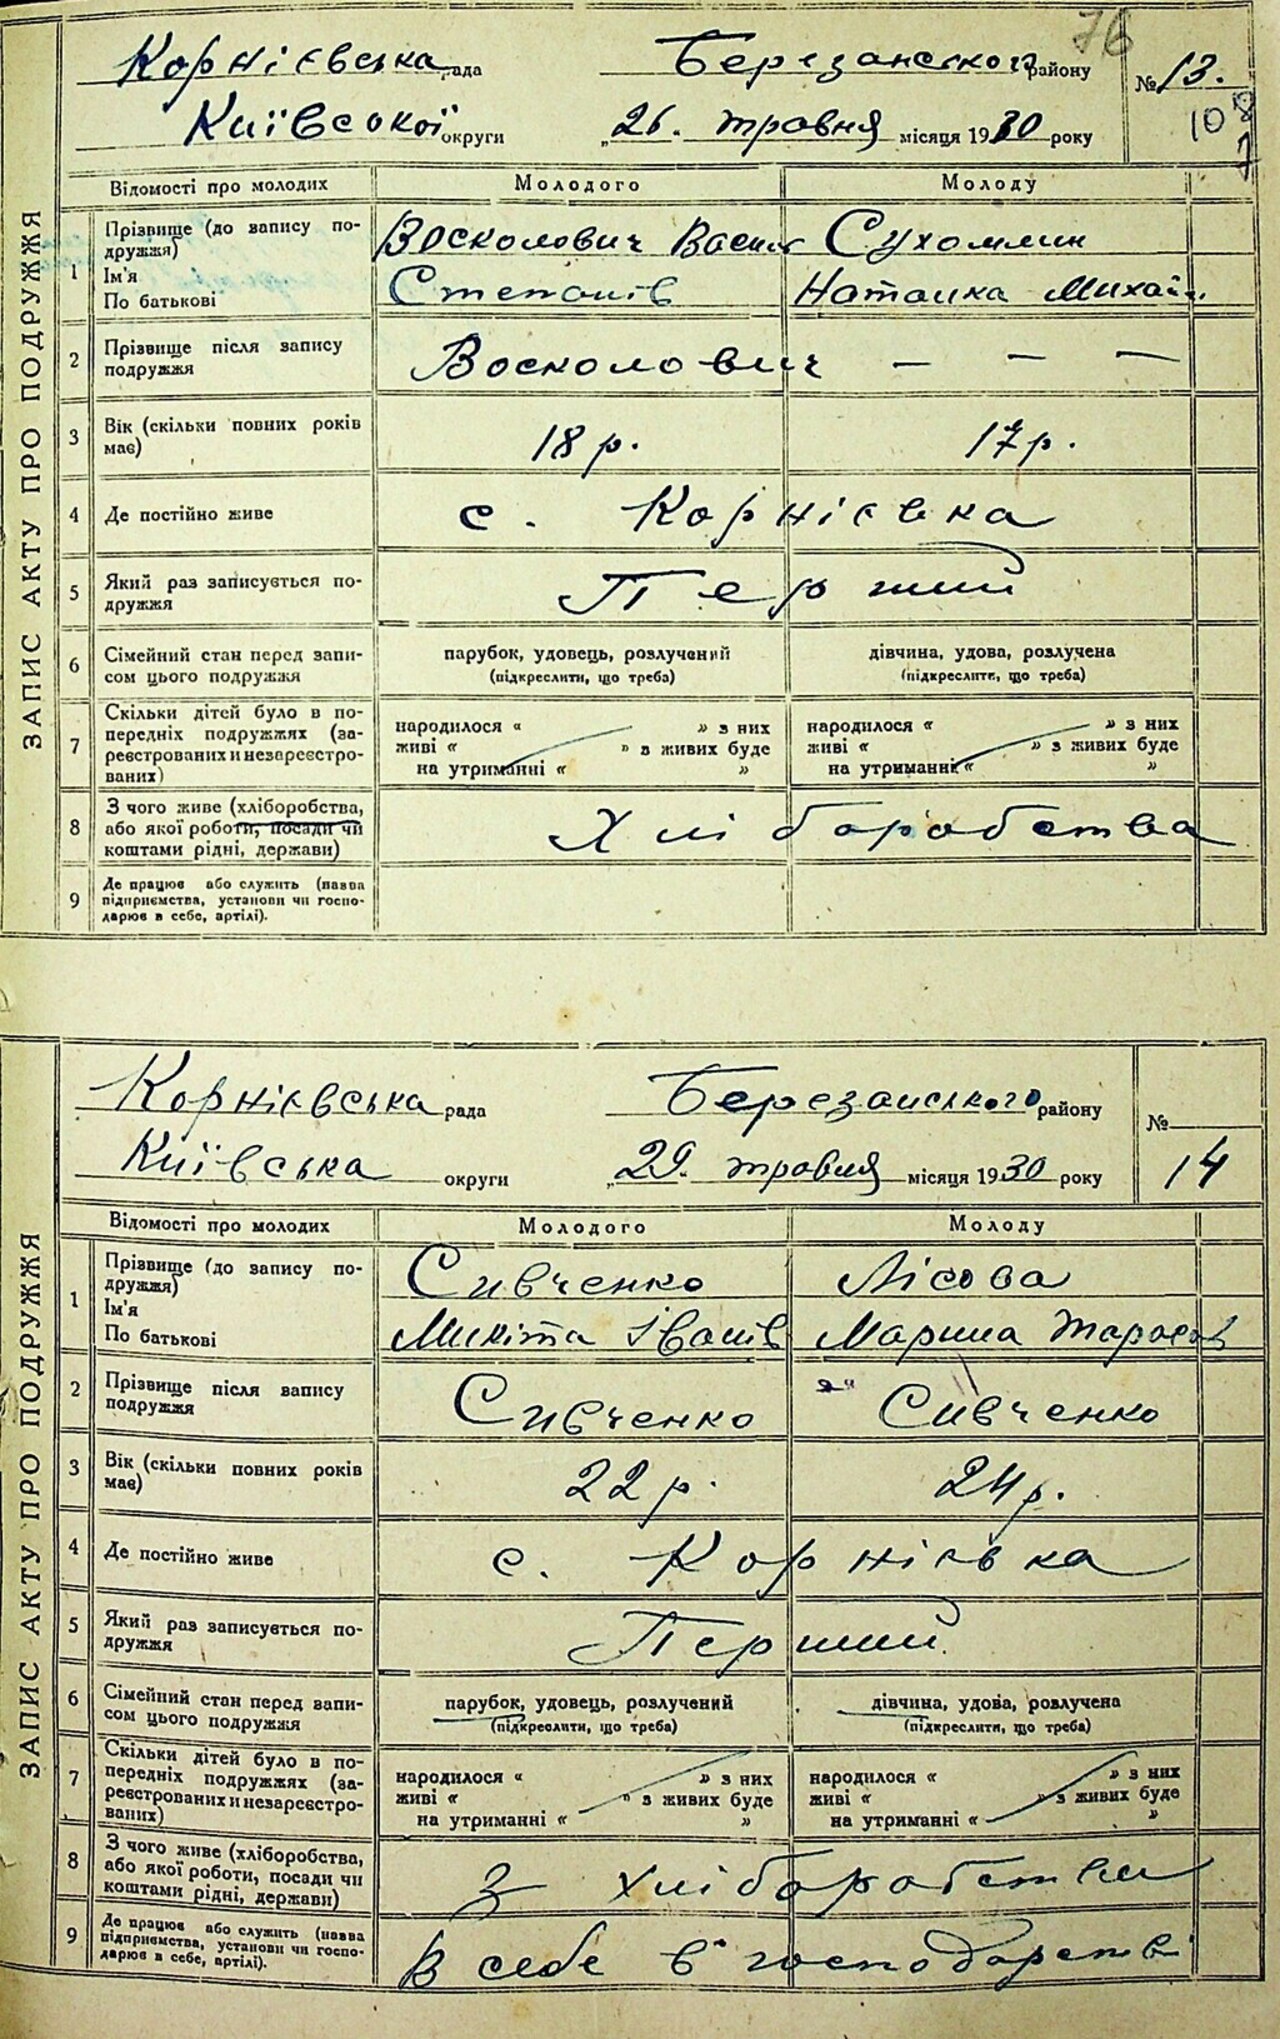 76
Корнієвська рада Березанського району № 13.
Київської округи „26. травня місяця 1930 року 108
ЗАПИС АКТУ ПРО ПОДРУЖЖЯ
Відомості про молодих Молодого Молоду
1 Прізвище (до запису по-
дружжя)
Ім'я
По батькові
Восколович Василь Сухомлин
Степанів Наталка Михайл.
2 Прізвище після запису
подружжя
Восколович — — —
3 Вік (скільки повних років
має)
18 р. 17 р.
4 Де постійно живе с. Корнієвка
5 Який раз записується по-
дружжя
Перший
6 Сімейний стан перед запи-
сом цього подружжя
парубок, удовець, розлучений дівчина, удова, розлучена
(підкреслити, що треба) (підкреслити, що треба)
7 Скільки дітей було в по-
передніх подружжях (за-
реєстрованих и незареєстро-
ваних)
народилося “ ” з них народилося “ ” з них
живі “ ” з живих буде живі “ ” з живих буде
на утриманні “ ” на утриманні “ ”
8 З чого живе (хліборобства,
або якої роботи, посади чи
коштами рідні, держави)
Хліборобства
9 Де працює або служить (назва
підприємства, установи чи госпо-
дарює в себе, артілі).
Корнієвська рада Березанського району №
Київська округи „29. травня місяця 1930 року 14
ЗАПИС АКТУ ПРО ПОДРУЖЖЯ
Відомості про молодих Молодого Молоду
1 Прізвище (до запису по-
дружжя)
Ім'я
По батькові
Сивченко Лісова
Микіта Іванів Марина Тарасов
2 Прізвище після запису
подружжя
Сивченко Сивченко
3 Вік (скільки повних років
має)
22 р. 24 р.
4 Де постійно живе с. Корнієвка
5 Який раз записується по-
дружжя
Перший
6 Сімейний стан перед запи-
сом цього подружжя
парубок, удовець, розлучений дівчина, удова, розлучена
(підкреслити, що треба) (підкреслити, що треба)
7 Скільки дітей було в по-
передніх подружжях (за-
реєстрованих и незареєстро-
ваних)
народилося “ ” з них народилося “ ” з них
живі “ ” з живих буде живі “ ” з живих буде
на утриманні “ ” на утриманні “ ”
8 З чого живе (хліборобства,
або якої роботи, посади чи
коштами рідні, держави)
З хліборобства
9 Де працює або служить (назва
підприємства, установи чи госпо-
дарює в себе, артілі).
В себе в господарстві